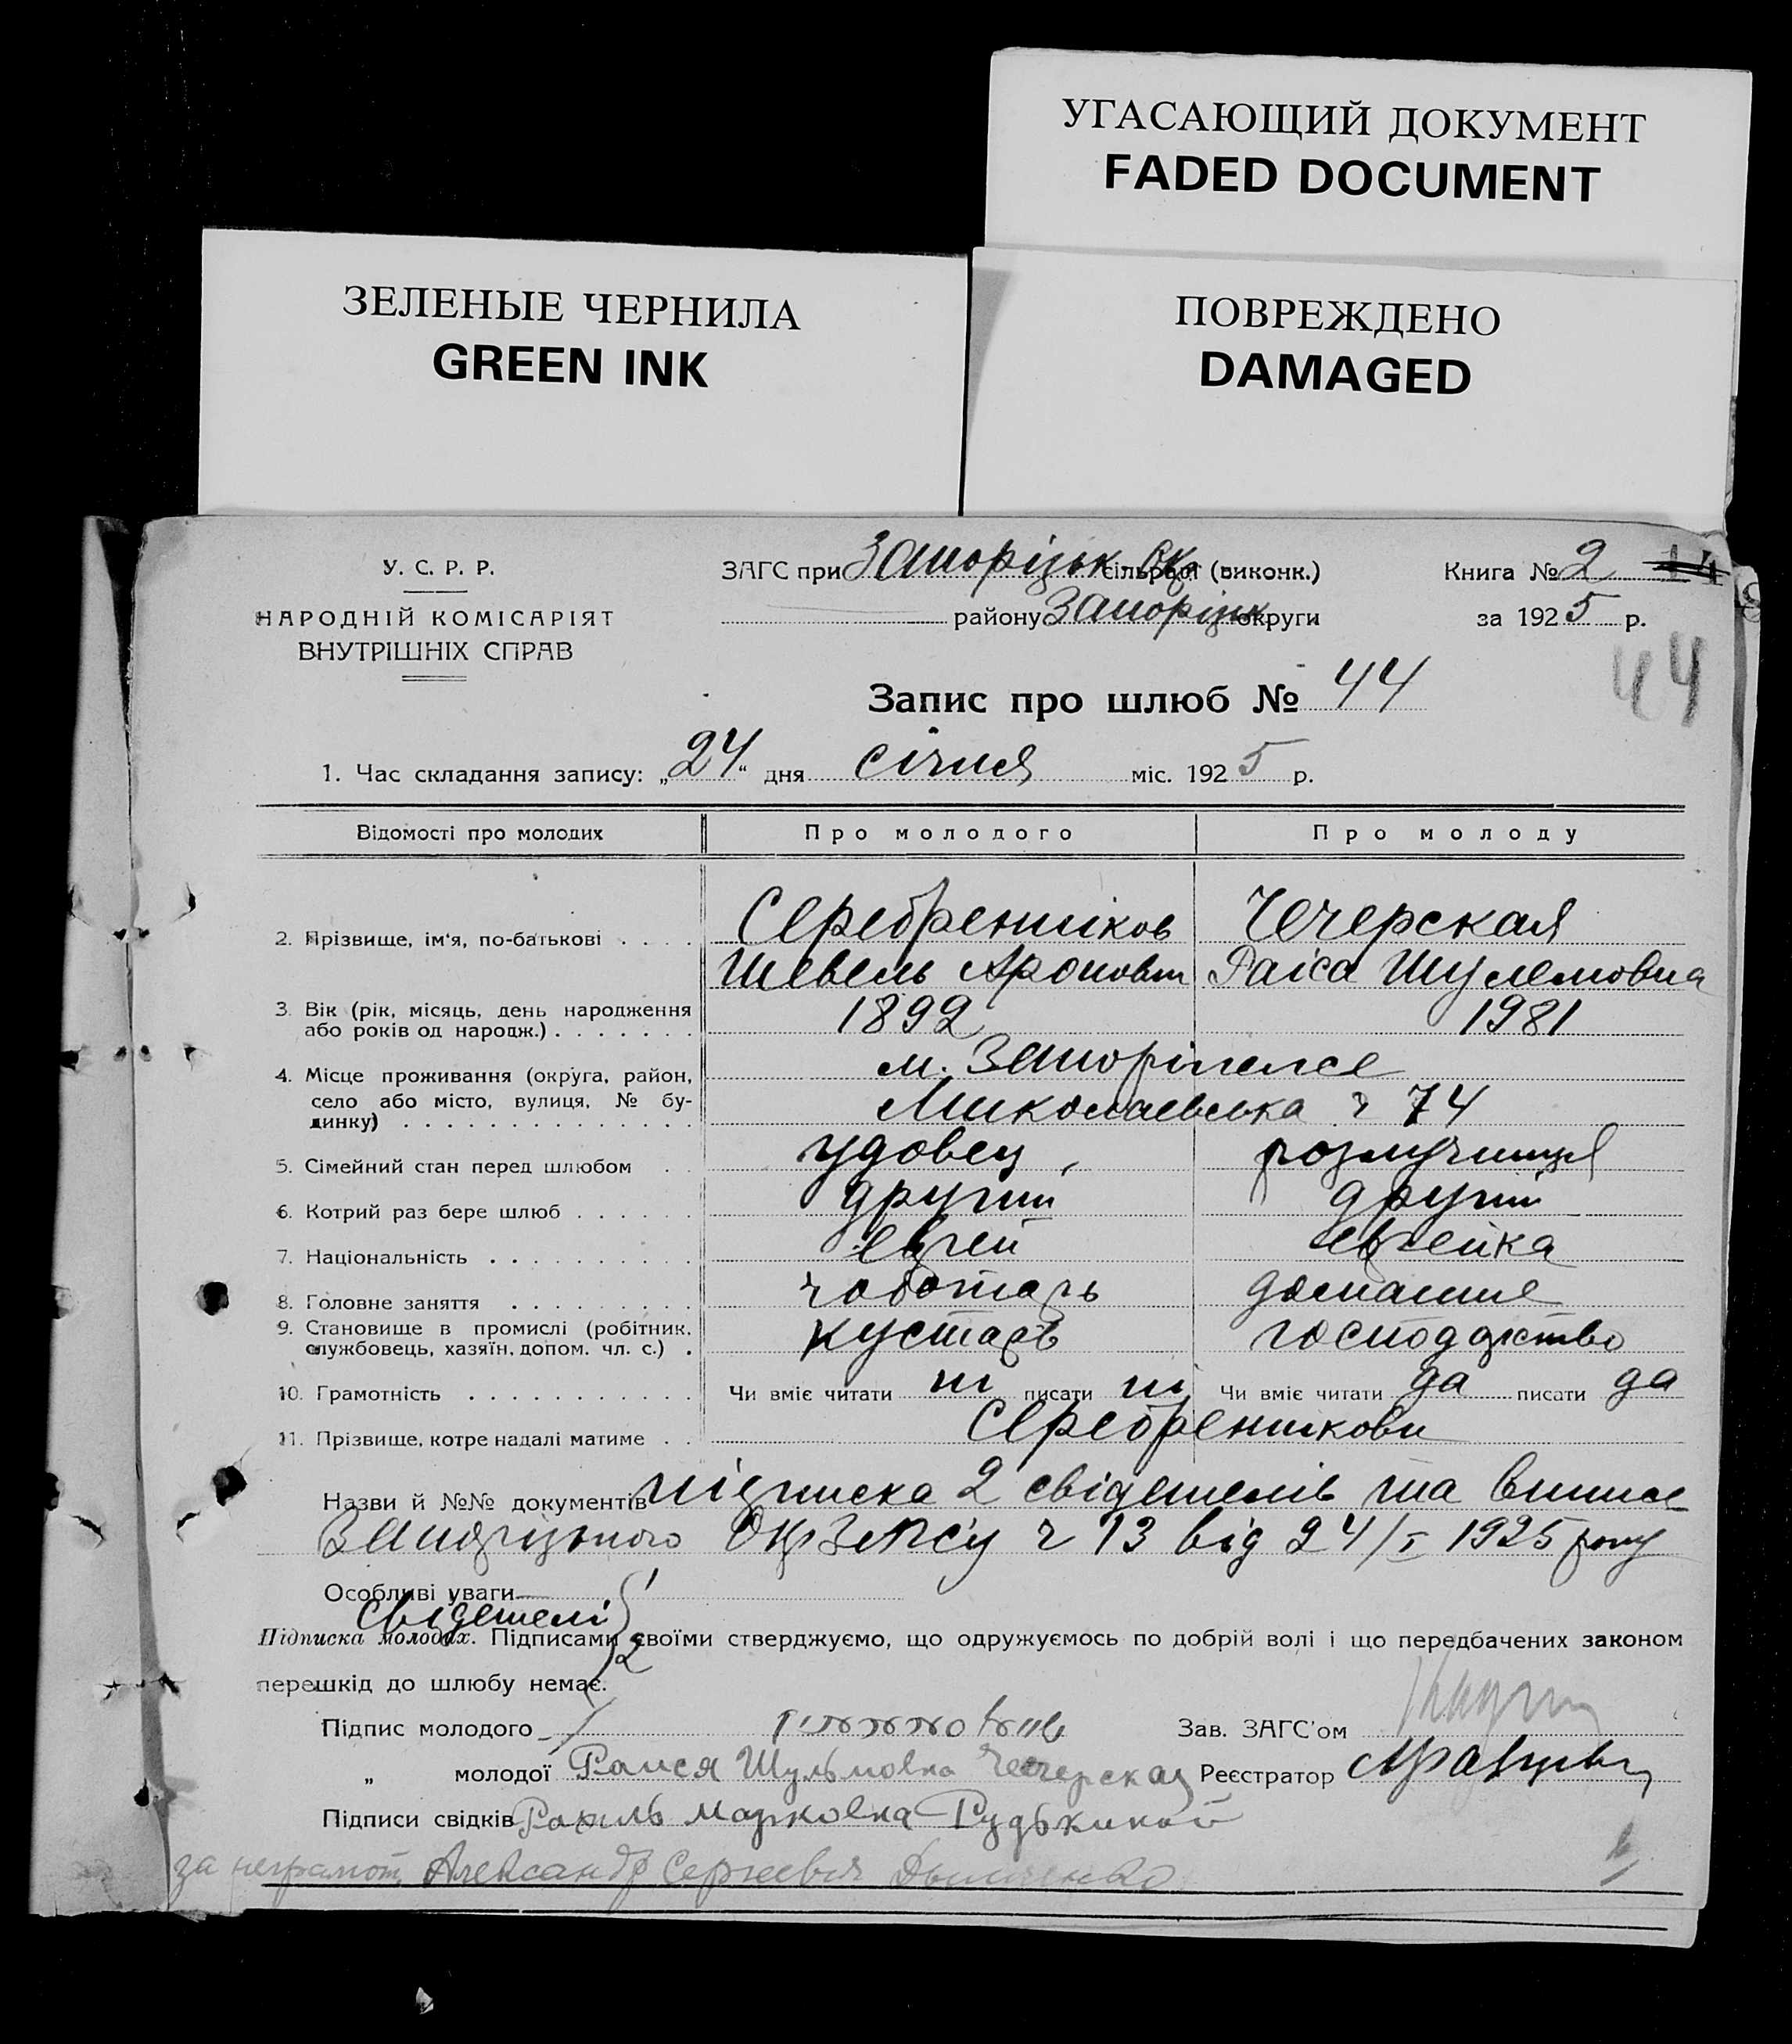 УГАСАЮЩИЙ ДОКУМЕНТ
FADED DOCUMENT
ЗЕЛЕНЫЕ ЧЕРНИЛА
GREEN INK
ПОВРЕЖДЕНО
DAMAGED
У. С. Р. Р.
НАРОДНІЙ КОМІСАРІЯТ
ВНУТРІШНІХ СПРАВ
ЗАГС при Запоріцьк. Окр. сільраді (виконк.)
району Запоріцьк округи
Книга № 2 14
за 1925 р.
44
Запис про шлюб № 44
1. Час складання запису: „24“ дня січня міс. 1925 р.
Відомості про молодих Про молодого Про молоду
2. Прізвище, ім'я, по-батькові . . . . Серебренников Чечерская
Шевель Аронович Раіса Шулемовна
3. Вік (рік, місяць, день народження
або років од народж.) . . . . . . . 1892 1981
4. Місце проживання (округа, район,
село або місто, вулиця, № бу-
динку) . . . . . . . . . . . . . .
м. Запоріжже
Миколаевська ч 74
5. Сімейний стан перед шлюбом . . удовец розлучниця
6. Котрий раз бере шлюб . . . . . . другий другий
7. Національність . . . . . . . . . . еврей еврейка
8. Головне заняття . . . . . . . . . чоботарь домашне
9. Становище в промислі (робітник,
службовець, хазяїн, допом. чл. с.) . кустарь господарство
10. Грамотність . . . . . . . . . . . Чи вміє читати ні писати ні Чи вміє читати да писати да
11. Прізвище, котре надалі матиме . . Серебренникови
Назви й №№ документів підписка 2 свідетелів та випис
Запоріцького ОкрЗАГСу ч 13 від 24/I 1925 року
Особливі уваги
свідетелі 2
Підписка молодих. Підписами своїми стверджуємо, що одружуємось по добрій волі і що передбачених законом
перешкід до шлюбу немає.
Підпис молодого Зав. ЗАГС'ом
„ молодої Раися Шульмовна Чечерская Реєстратор
Підписи свідків Рахиль Марковна Рудькиной
за неграмот Александр Сергеевич